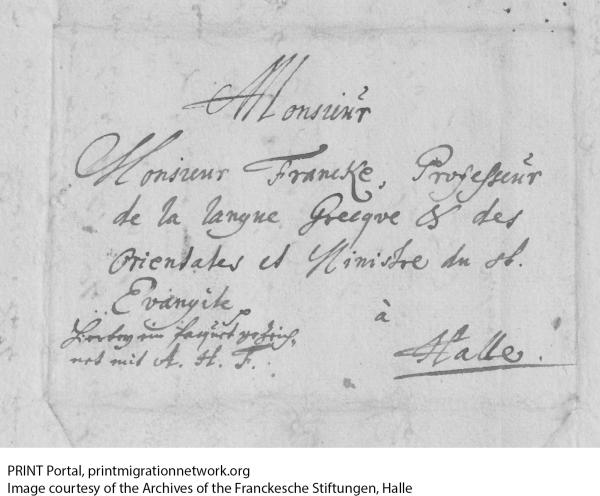 Monsieur
Monsieur Francke, Professeur
de la langue Grecque & des
Orientales et Ministre du st.
Evangile
à
Halle.
Hierbey ein Paquet gezeich-
net mit A. H. F.
PRINT Portal, printmigrationnetwork.org
Image courtesy of the Archives of the Franckesche Stiftungen, Halle